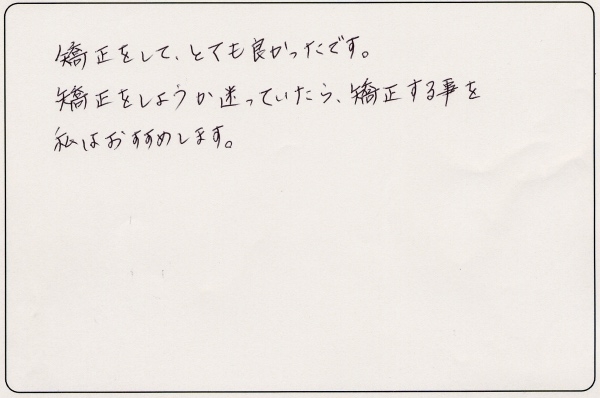 矯正をして、とても良かったです。
矯正をしようか迷っていたら、矯正する事を
私はおすすめします。